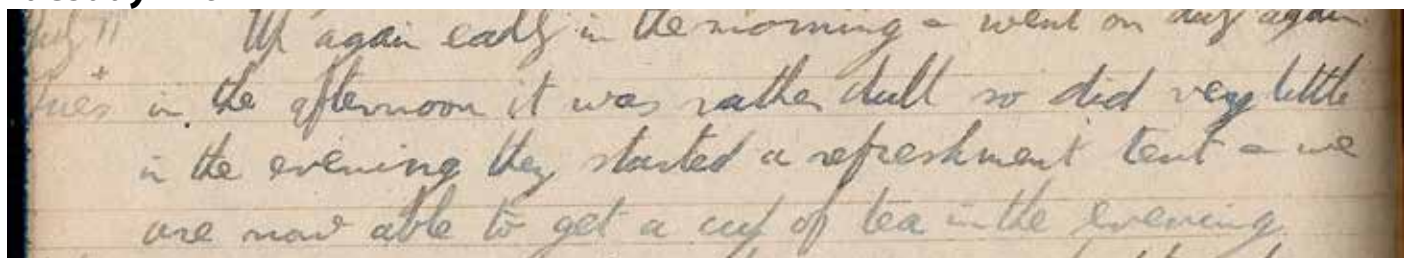 July 11 Up again early in the morning - went on duty again
Tues in the afternoon it was rather dull so did very little
in the evening they started a refreshment tent - we
are now able to get a cup of tea in the evening